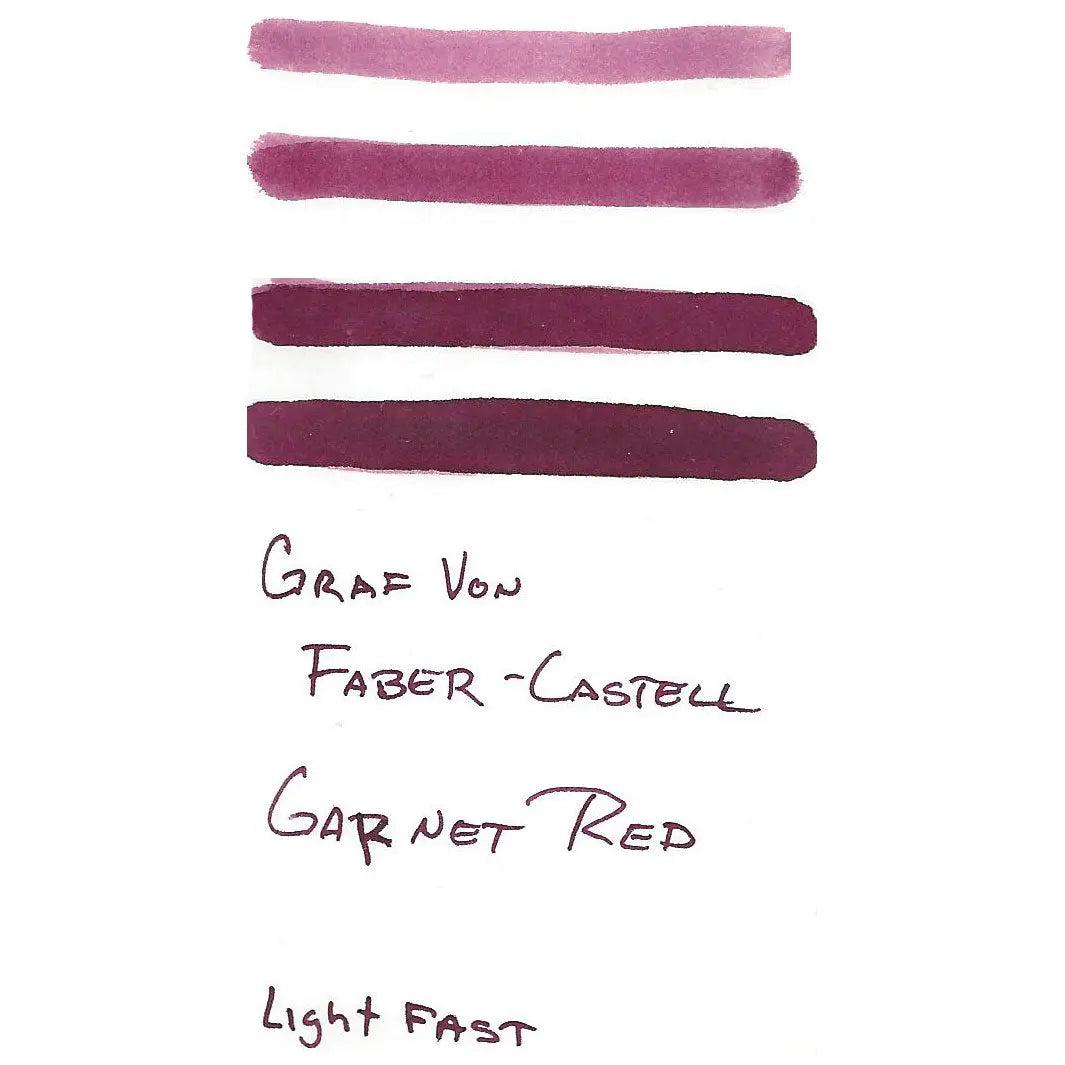 Graf Von
Faber-Castell
Garnet Red
Light Fast